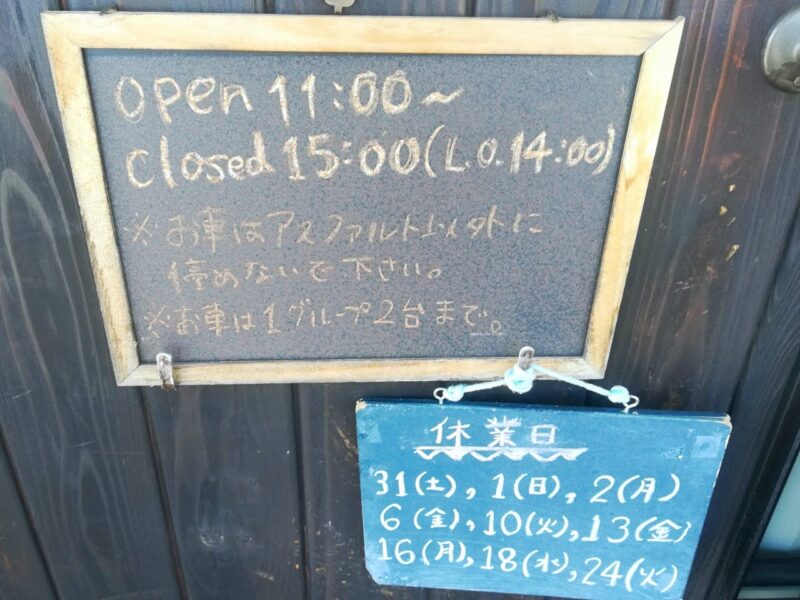 open 11:00～
closed 15:00(L.O.14:00)
※お車はアスファルト以外に
停めないで下さい。
※お車は1グループ2台まで。
休業日
31(土),1(日),2(月)
6(金),10(火),13(金)
16(月),18(水),24(火)